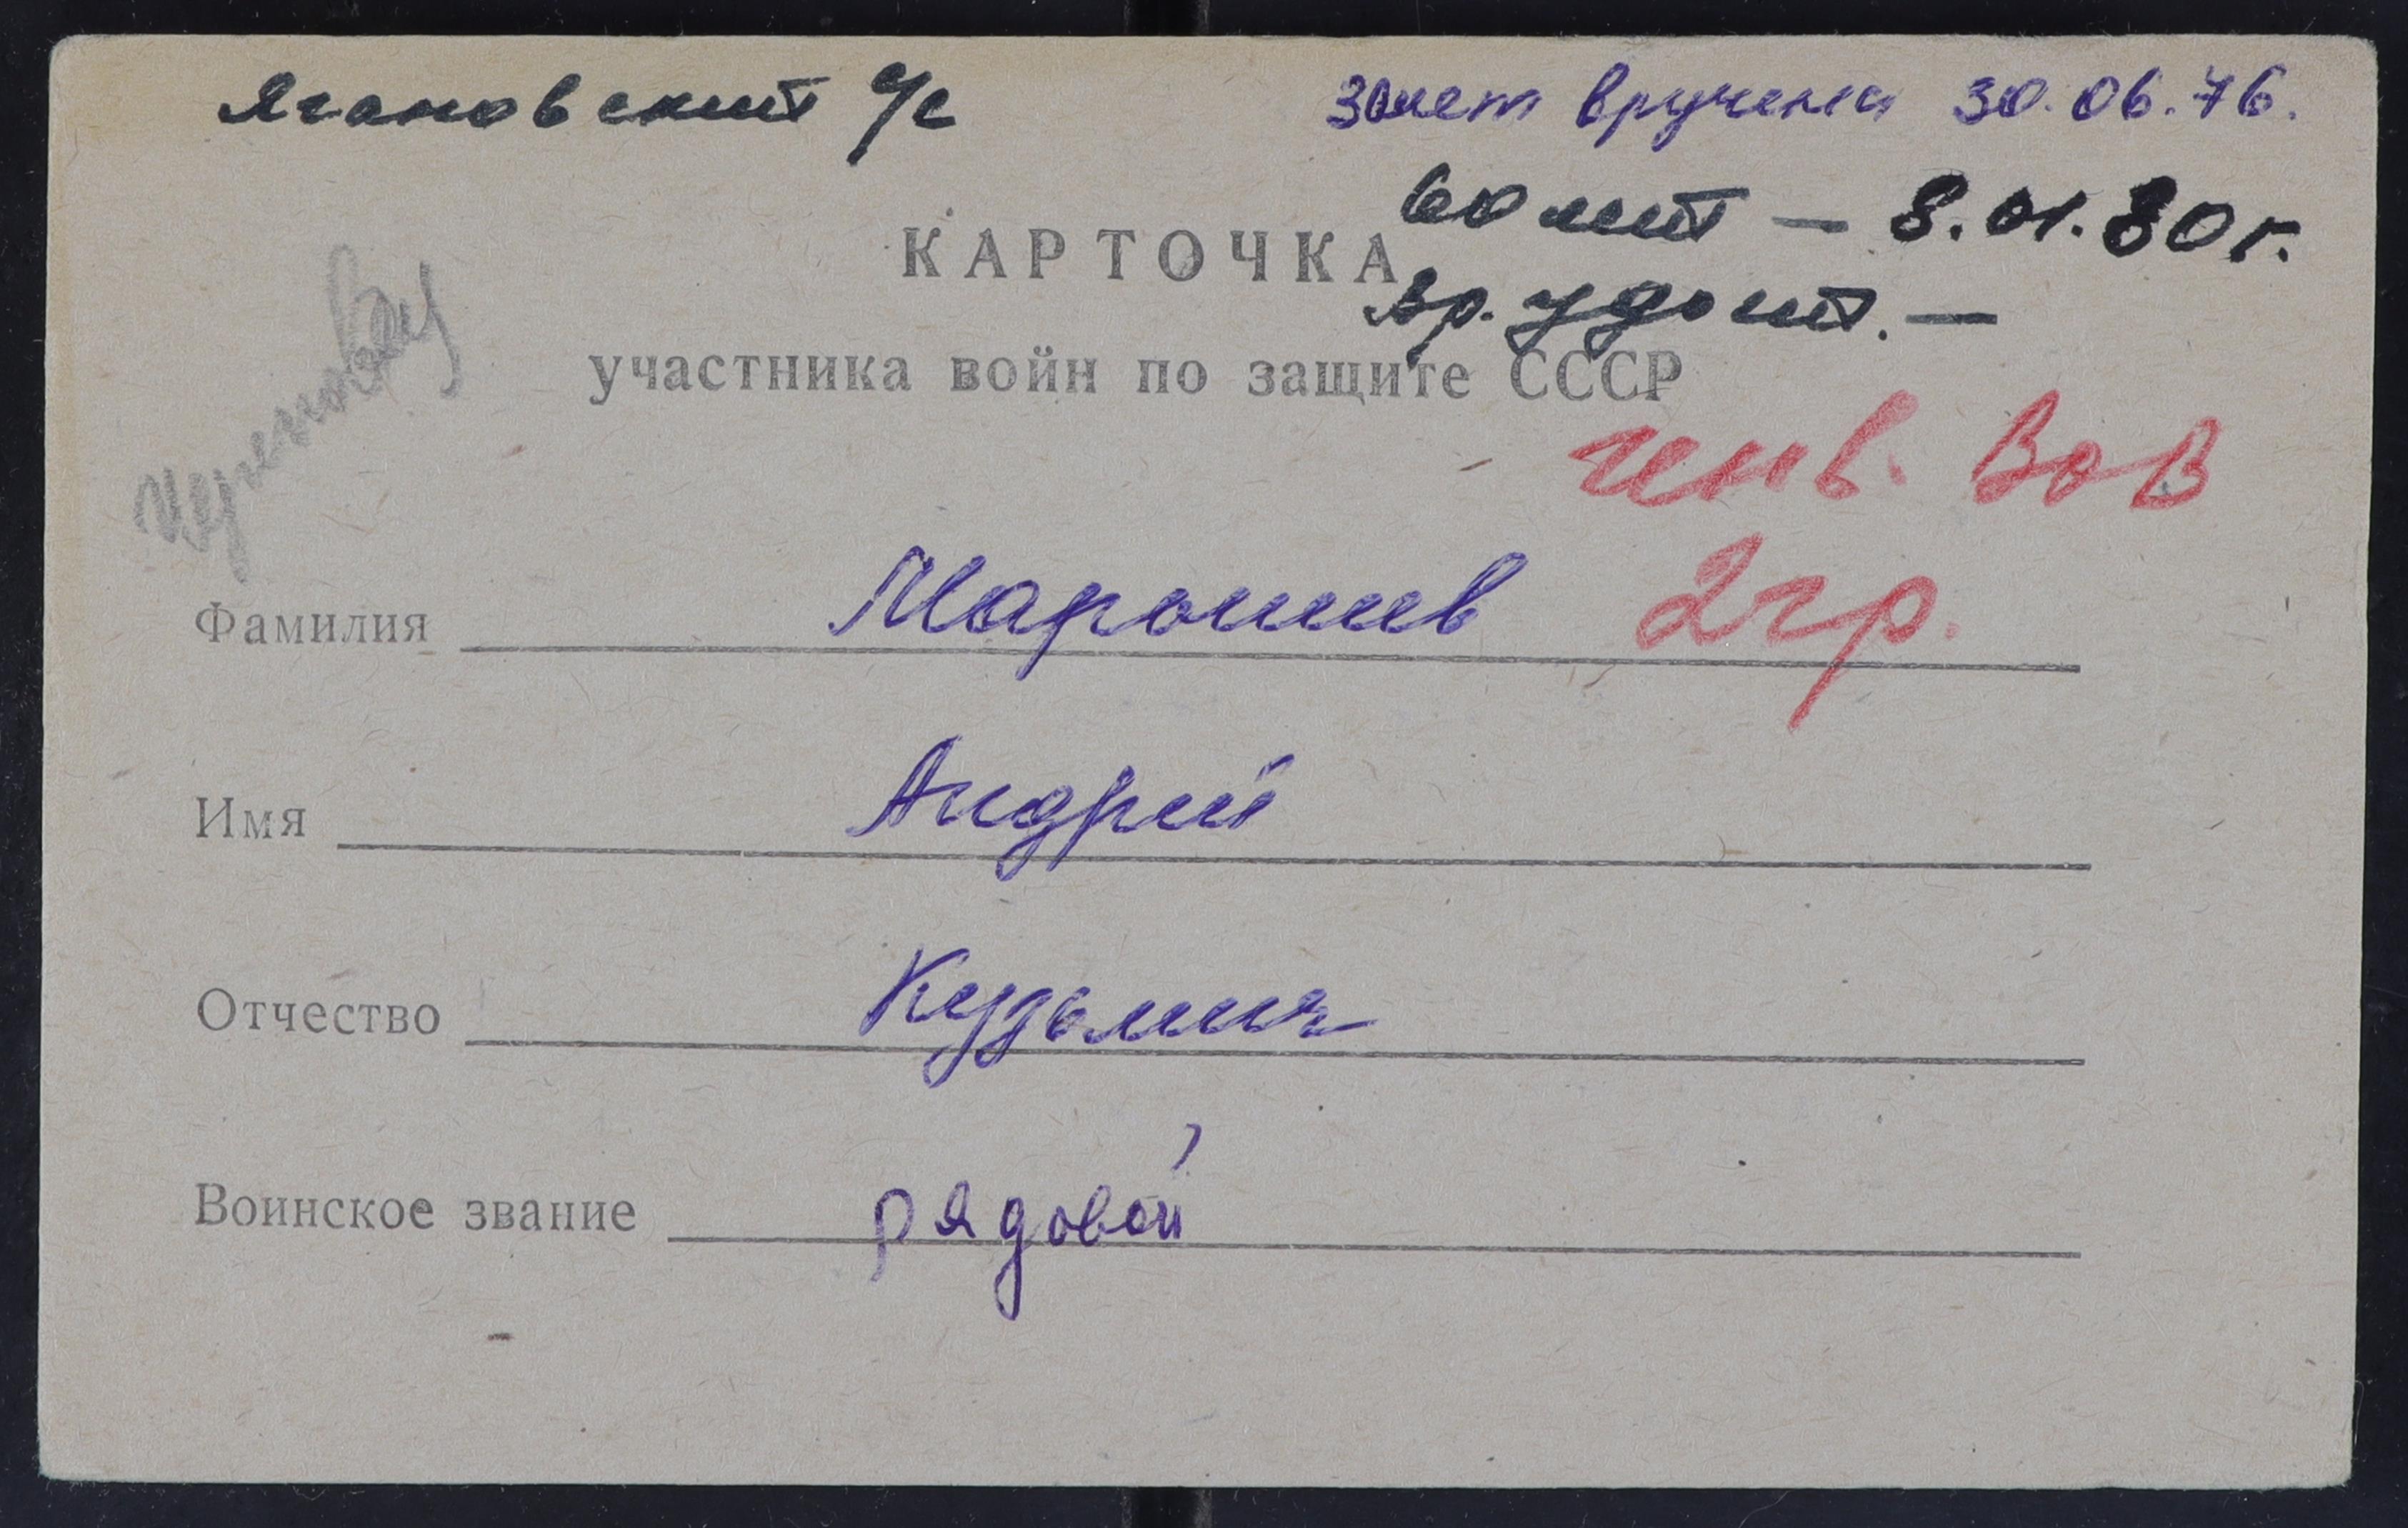 Ягановский с/с
30 лет вручена 30.06.76.
60 лет – 8.01.80г.
КАРТОЧКА
вр. удост. –
участника войн по защите СССР
инв. ВОВ
Фамилия Марошив 2гр.
Имя Андрей
Отчество Кузьмич
Воинское звание рядовой